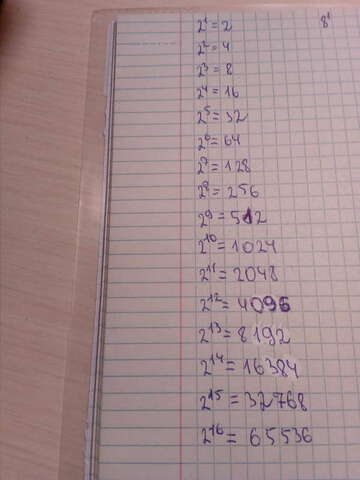 2¹ = 2 8¹
2² = 4
2³ = 8
2⁴ = 16
2⁵ = 32
2⁶ = 64
2⁷ = 128
2⁸ = 256
2⁹ = 512
2¹⁰ = 1024
2¹¹ = 2048
2¹² = 4096
2¹³ = 8192
2¹⁴ = 16384
2¹⁵ = 32768
2¹⁶ = 65536